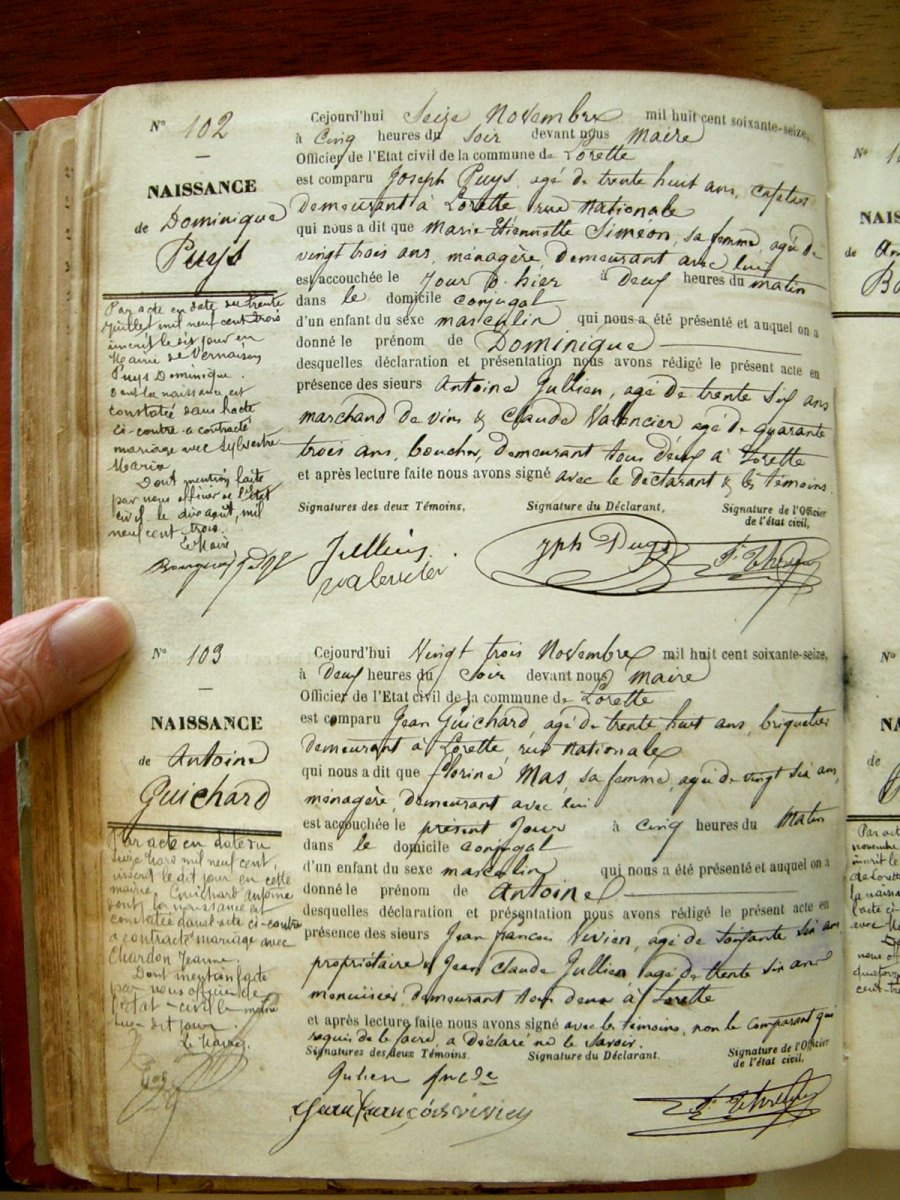 N° 102
NAISSANCE
de Dominique
Puys
Par acte en date du trente
juillet mil neuf cent trois
inscrit le dis jour en
Mairie de Vernaison
Puys Dominique.
dont la naissance est
constatée dans l'acte
ci-contre a contracté
mariage avec Sylvestre
Maria
Dont mention faite
par nous officier de l'état
civil le dix août, mil
neuf cent trois.
Le Maire
Cejourd'hui Seize Novembre mil huit cent soixante-seize,
à Cinq heures du Soir devant nous Maire
Officier de l'Etat civil de la commune de Lorette
est comparu Joseph Puys, agé de trente huit ans, cafetier
demeurant à Lorette rue Nationale
qui nous a dit que Marie Etiennette Simeon, sa femme, agée de
vingt trois ans, ménagère, demeurant avec lui
est accouchée le Jour d'hier à deux heures du matin
dans le domicile conjugal
d'un enfant du sexe masculin qui nous a été présenté et auquel on a
donné le prénom de Dominique
desquelles déclaration et présentation nous avons rédigé le présent acte en
présence des sieurs Antoine Jullien, agé de trente six ans
marchand de vins & Claude Valencier agé de quarante
trois ans, boucher, demeurant tous deux à Lorette
et après lecture faite nous avons signé avec le déclarant & les témoins.
Signatures des deux Témoins, Signature du Déclarant, Signature de l'Officier
de l'état civil,
Jullien
Valencier
N° 103
NAISSANCE
de Antoine
Guichard
Par acte en date du
seize mars mil neuf cent,
inscrit le dit jour en cette
mairie, Guichard Antoine
dont la naissance est
constatée dans l'acte ci-contre
a contracté mariage avec
Chardon Jeanne.
Dont mention faite
par nous officier de
l'état-civil le même
dit jour.
Le Maire,
Cejourd'hui Vingt trois Novembre mil huit cent soixante-seize,
à Deux heures du Soir devant nous Maire
Officier de l'Etat civil de la commune de Lorette
est comparu Jean Guichard, agé de trente huit ans, briquetier
demeurant à Lorette, rue Nationale
qui nous a dit que florine Mas, sa femme, agée de vingt six ans,
ménagère, demeurant avec lui
est accouchée le présent Jour à cinq heures du Matin
dans le domicile conjugal
d'un enfant du sexe masculin qui nous a été présenté et auquel on a
donné le prénom de Antoine
desquelles déclaration et présentation nous avons rédigé le présent acte en
présence des sieurs Jean françois Vivien, agé de soixante six ans
propriétaire & Jean Claude Jullien agé de trente six ans
menuisier, demeurant tous deux à Lorette
et après lecture faite nous avons signé avec les témoins, non le Comparant qui
requis de le faire, a déclaré ne le savoir.
Signatures des deux Témoins. Signature du Déclarant. Signature de l'Officier
de l'état civil,
Julien
Jean françois vivien